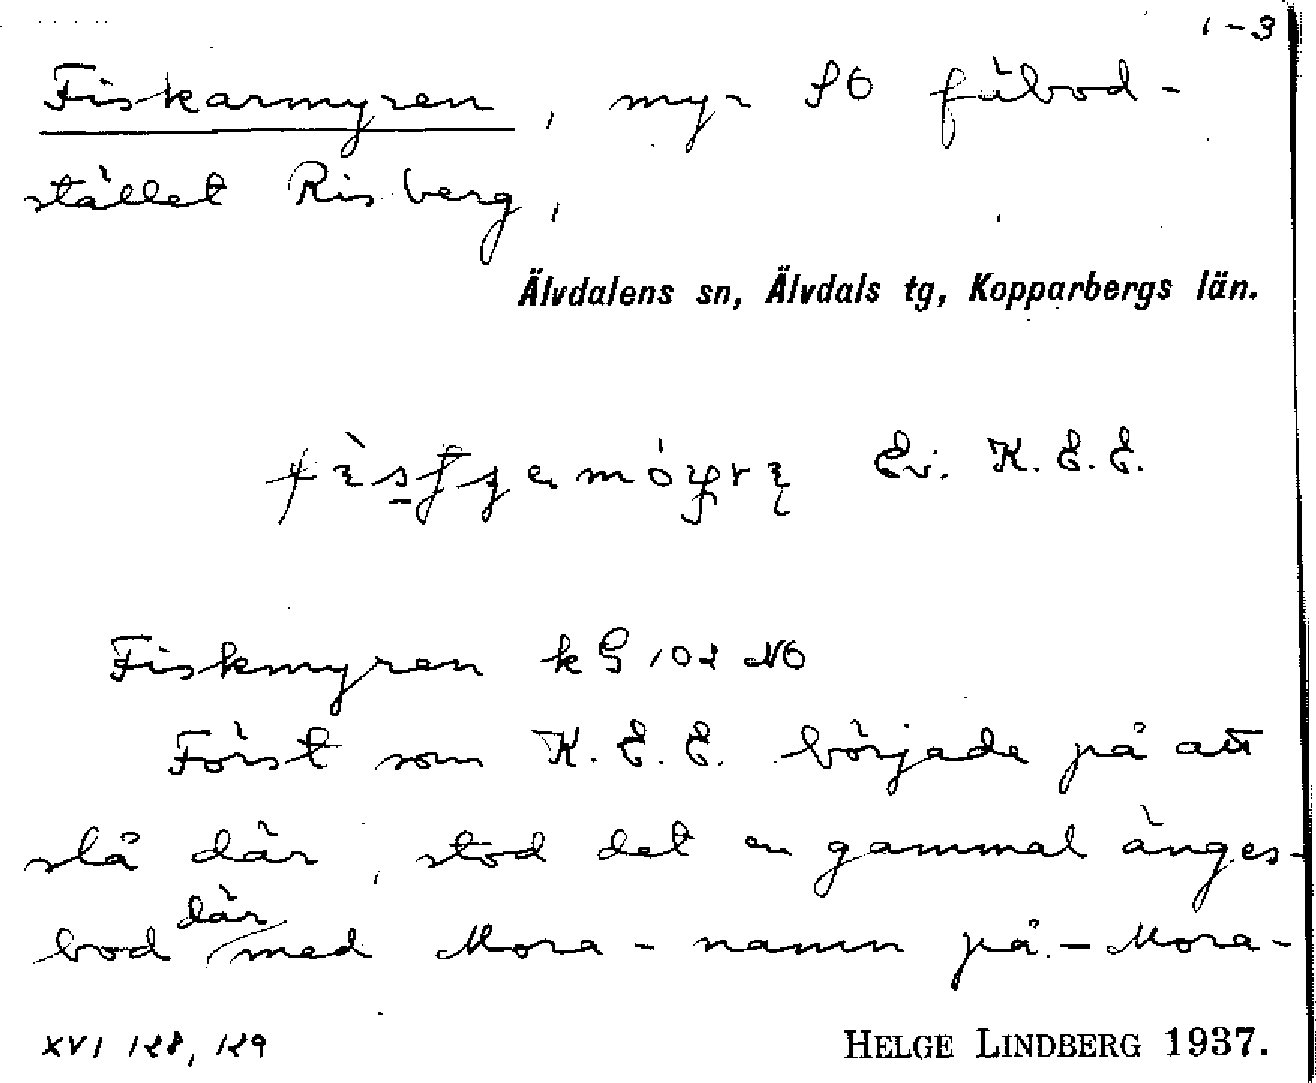 1-3
Fiskarmyren, myr SO fäbod-
stället Risberg,
Älvdalens sn, Älvdals tg, Kopparbergs län.
Ev. K. E. E.
Fiskmyren kG 102 NO
Först som K. E. E. började på att
slå där, stod det en gammal änges-
bod där med Mora-namn på. – Mora-
XVI 128, 129
HELGE LINDBERG 1937.